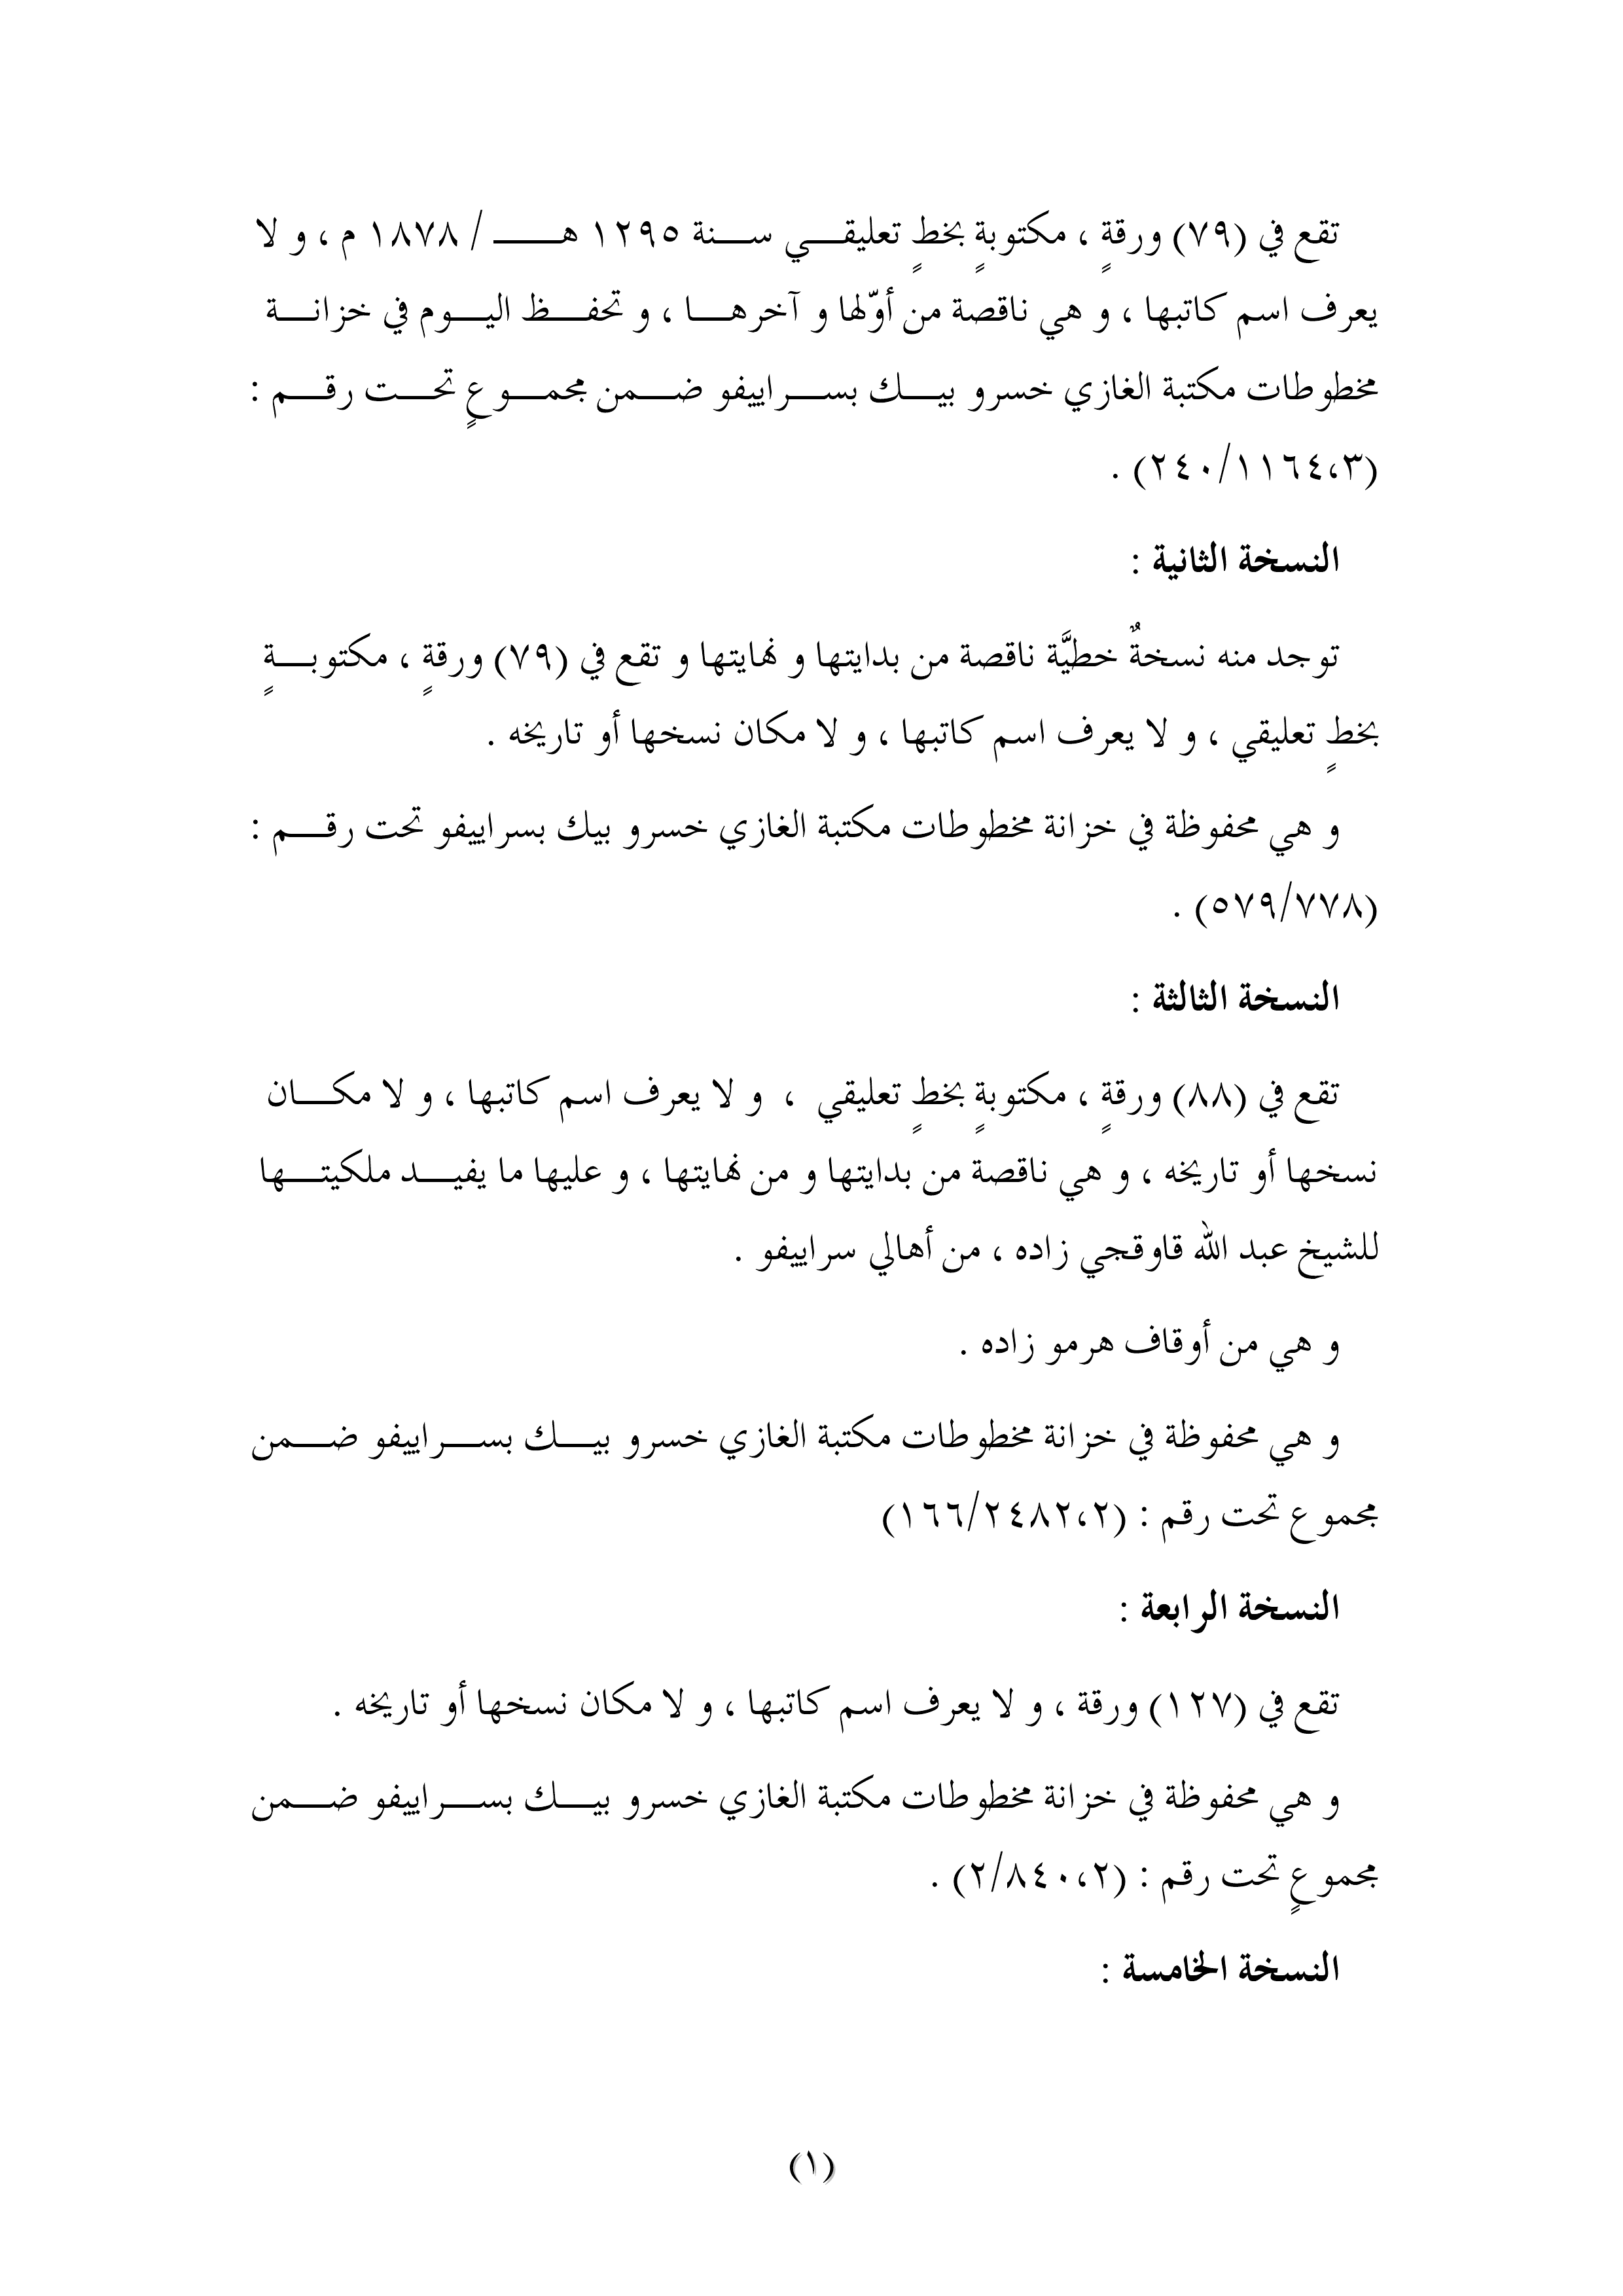 تقع في (٧٩) ورقةٍ ، مكتوبةٍ بخطٍ تعليقي سنة ١٢٩٥ هـ / ١٨٧٨ م ، و لا
يعرف اسم كاتبها ، و هي ناقصة من أوّلها و آخرها ، و تحفظ اليوم في خزانة
مخطوطات مكتبة الغازي خسرو بيك بسراييفو ضمن مجموعٍ تحت رقم :
(٢٤٠/١١٦٤،٣) .
النسخة الثانية :
توجد منه نسخةٌ خطيَّة ناقصة من بدايتها و نهايتها و تقع في (٧٩) ورقةٍ ، مكتوبةٍ
بخطٍ تعليقي ، و لا يعرف اسم كاتبها ، و لا مكان نسخها أو تاريخه .
و هي محفوظة في خزانة مخطوطات مكتبة الغازي خسرو بيك بسراييفو تحت رقم :
(٥٧٩/٧٧٨) .
النسخة الثالثة :
تقع في (٨٨) ورقةٍ ، مكتوبةٍ بخطٍ تعليقي ، و لا يعرف اسم كاتبها ، و لا مكان
نسخها أو تاريخه ، و هي ناقصة من بدايتها و من نهايتها ، و عليها ما يفيد ملكيتها
للشيخ عبد الله قاوقجي زاده ، من أهالي سراييفو .
و هي من أوقاف هرمو زاده .
و هي محفوظة في خزانة مخطوطات مكتبة الغازي خسرو بيك بسراييفو ضمن
مجموع تحت رقم : (١٦٦/٢٤٨٢،٢)
النسخة الرابعة :
تقع في (١٢٧) ورقة ، و لا يعرف اسم كاتبها ، و لا مكان نسخها أو تاريخه .
و هي محفوظة في خزانة مخطوطات مكتبة الغازي خسرو بيك بسراييفو ضمن
مجموعٍ تحت رقم : (٢/٨٤٠،٢) .
النسخة الخامسة :
(١)